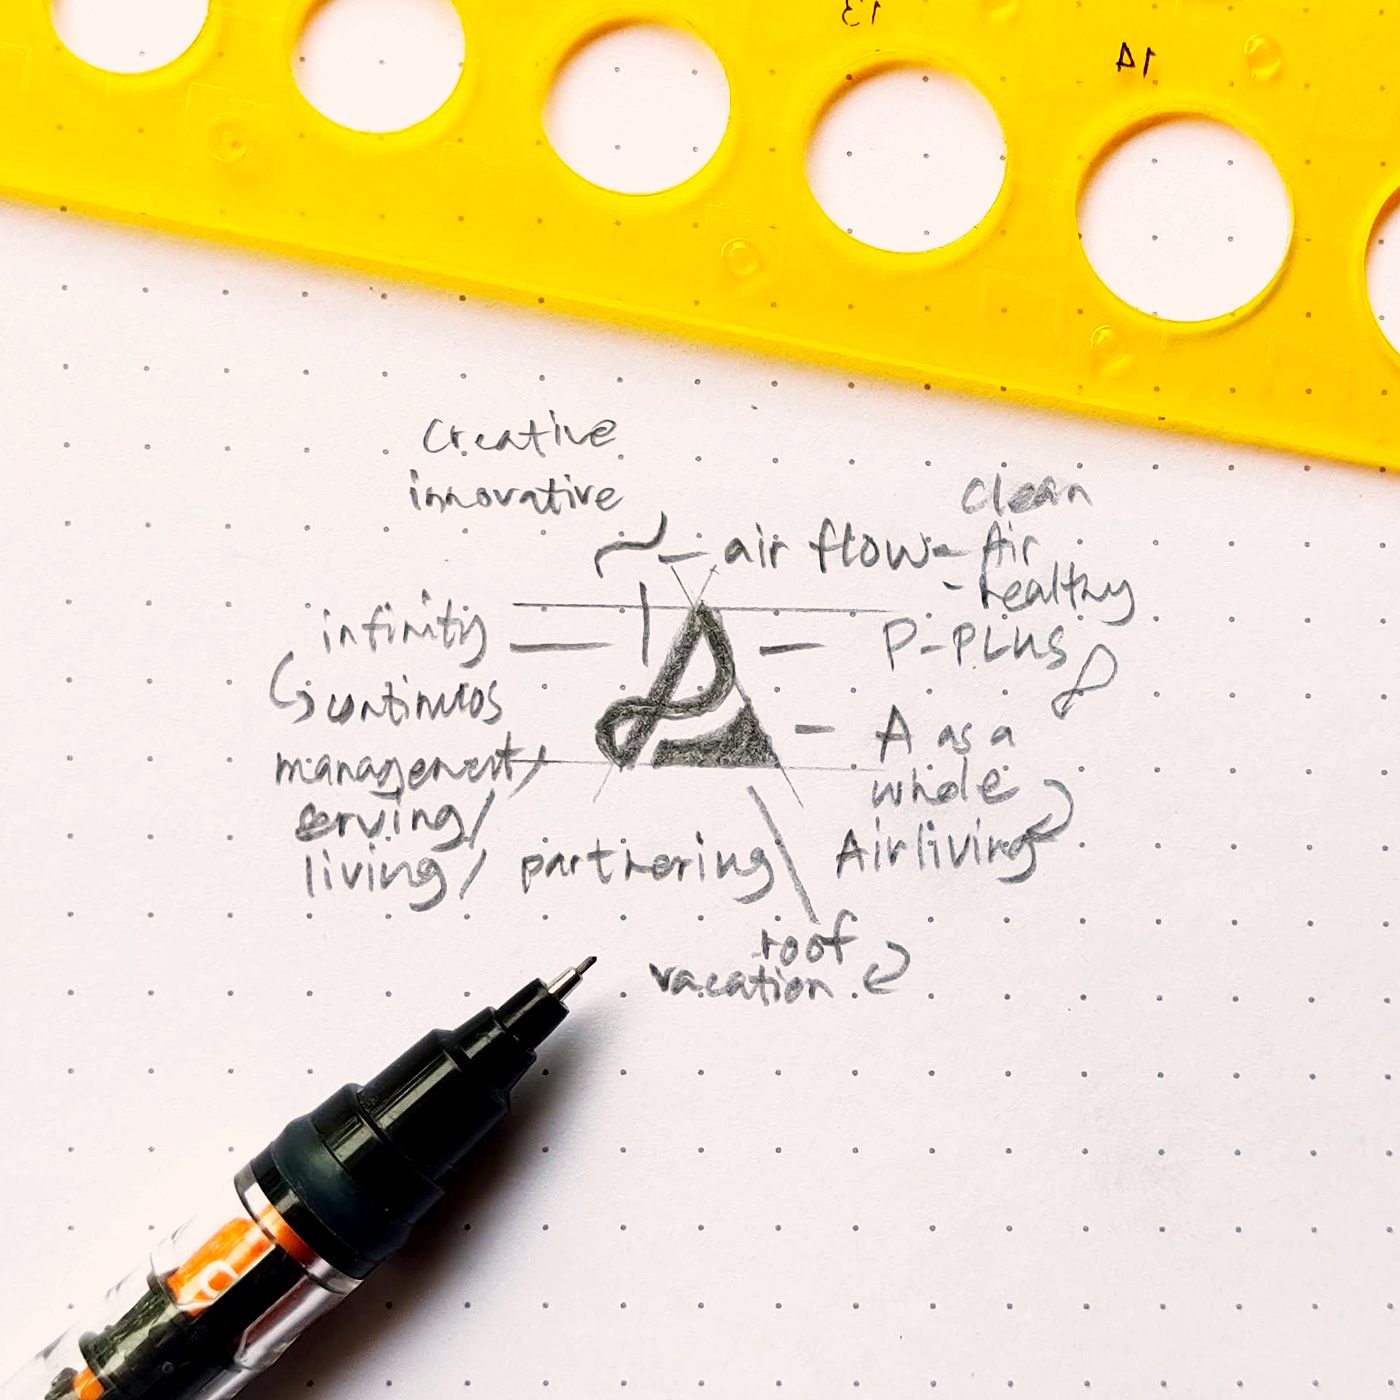 13
14
Creative
innovative
clean
air flow - Air
- healthy
infinity
P-PLUS
continuos
A as a
whole
management/
serving/
living/ partnering
Airliving
roof
vacation